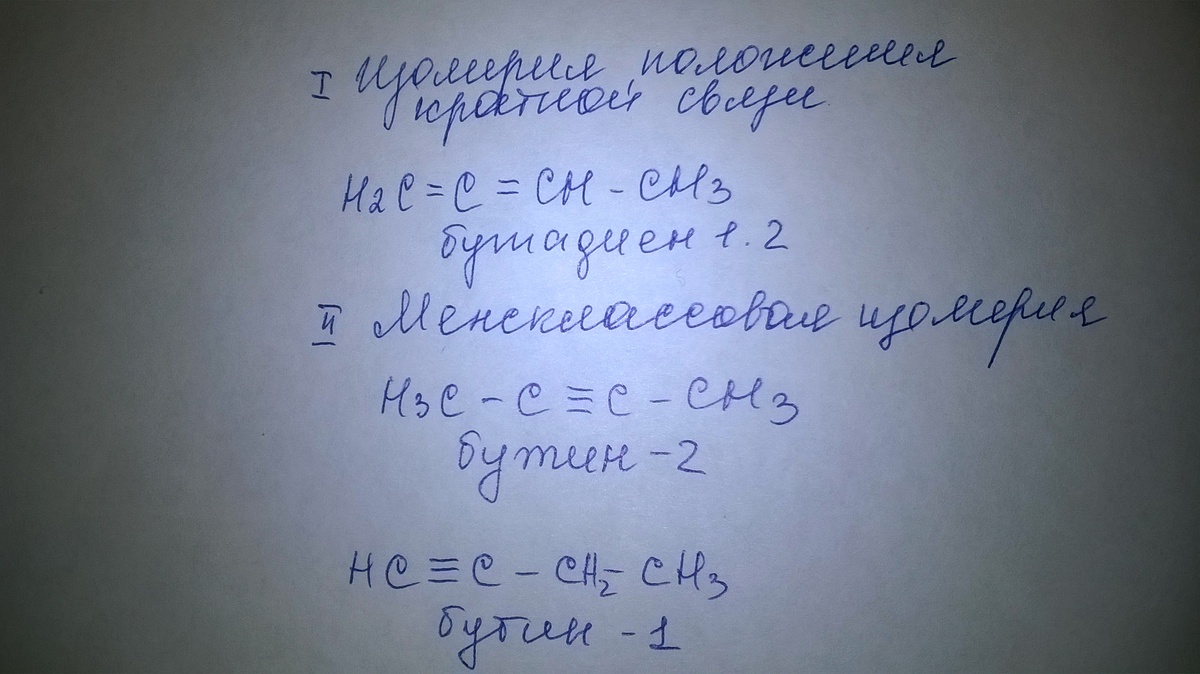 I Изомерия положения
кратной связи
H2C=C=CH-CH3
бутадиен 1.2
II Межклассовая изомерия
H3C-C≡C-CH3
бутин-2
HC≡C-CH2-CH3
бутин-1